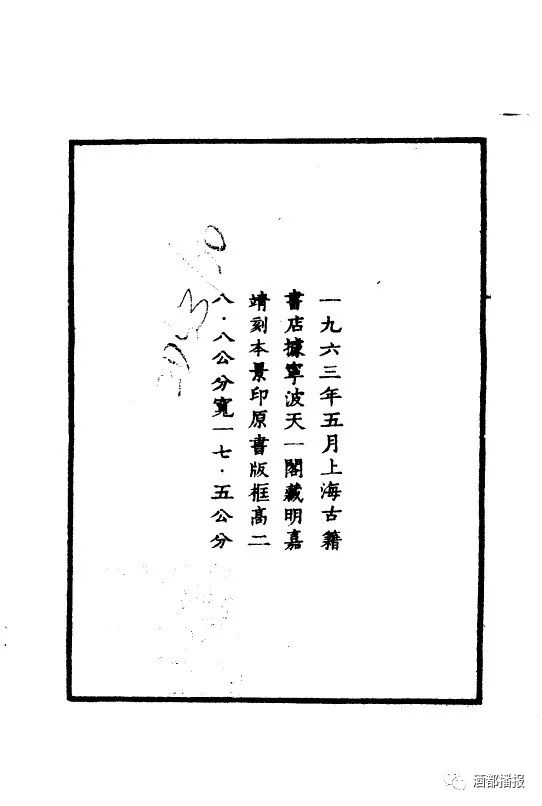 一九六三年五月上海古籍
書店據寧波天一閣藏明嘉
靖刻本景印原書版框高二
八·八公分寬一七·五公分
酒都播报